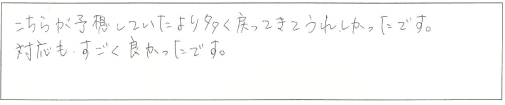 こちらが予想していたより多く戻ってきてうれしかったです。
対応も、すごく良かったです。